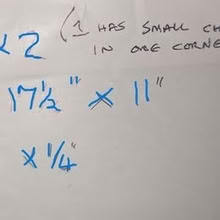 x2 (1 HAS SMALL CH
IN ONE CORNE
17 1/2" x 11"
x 1/4"